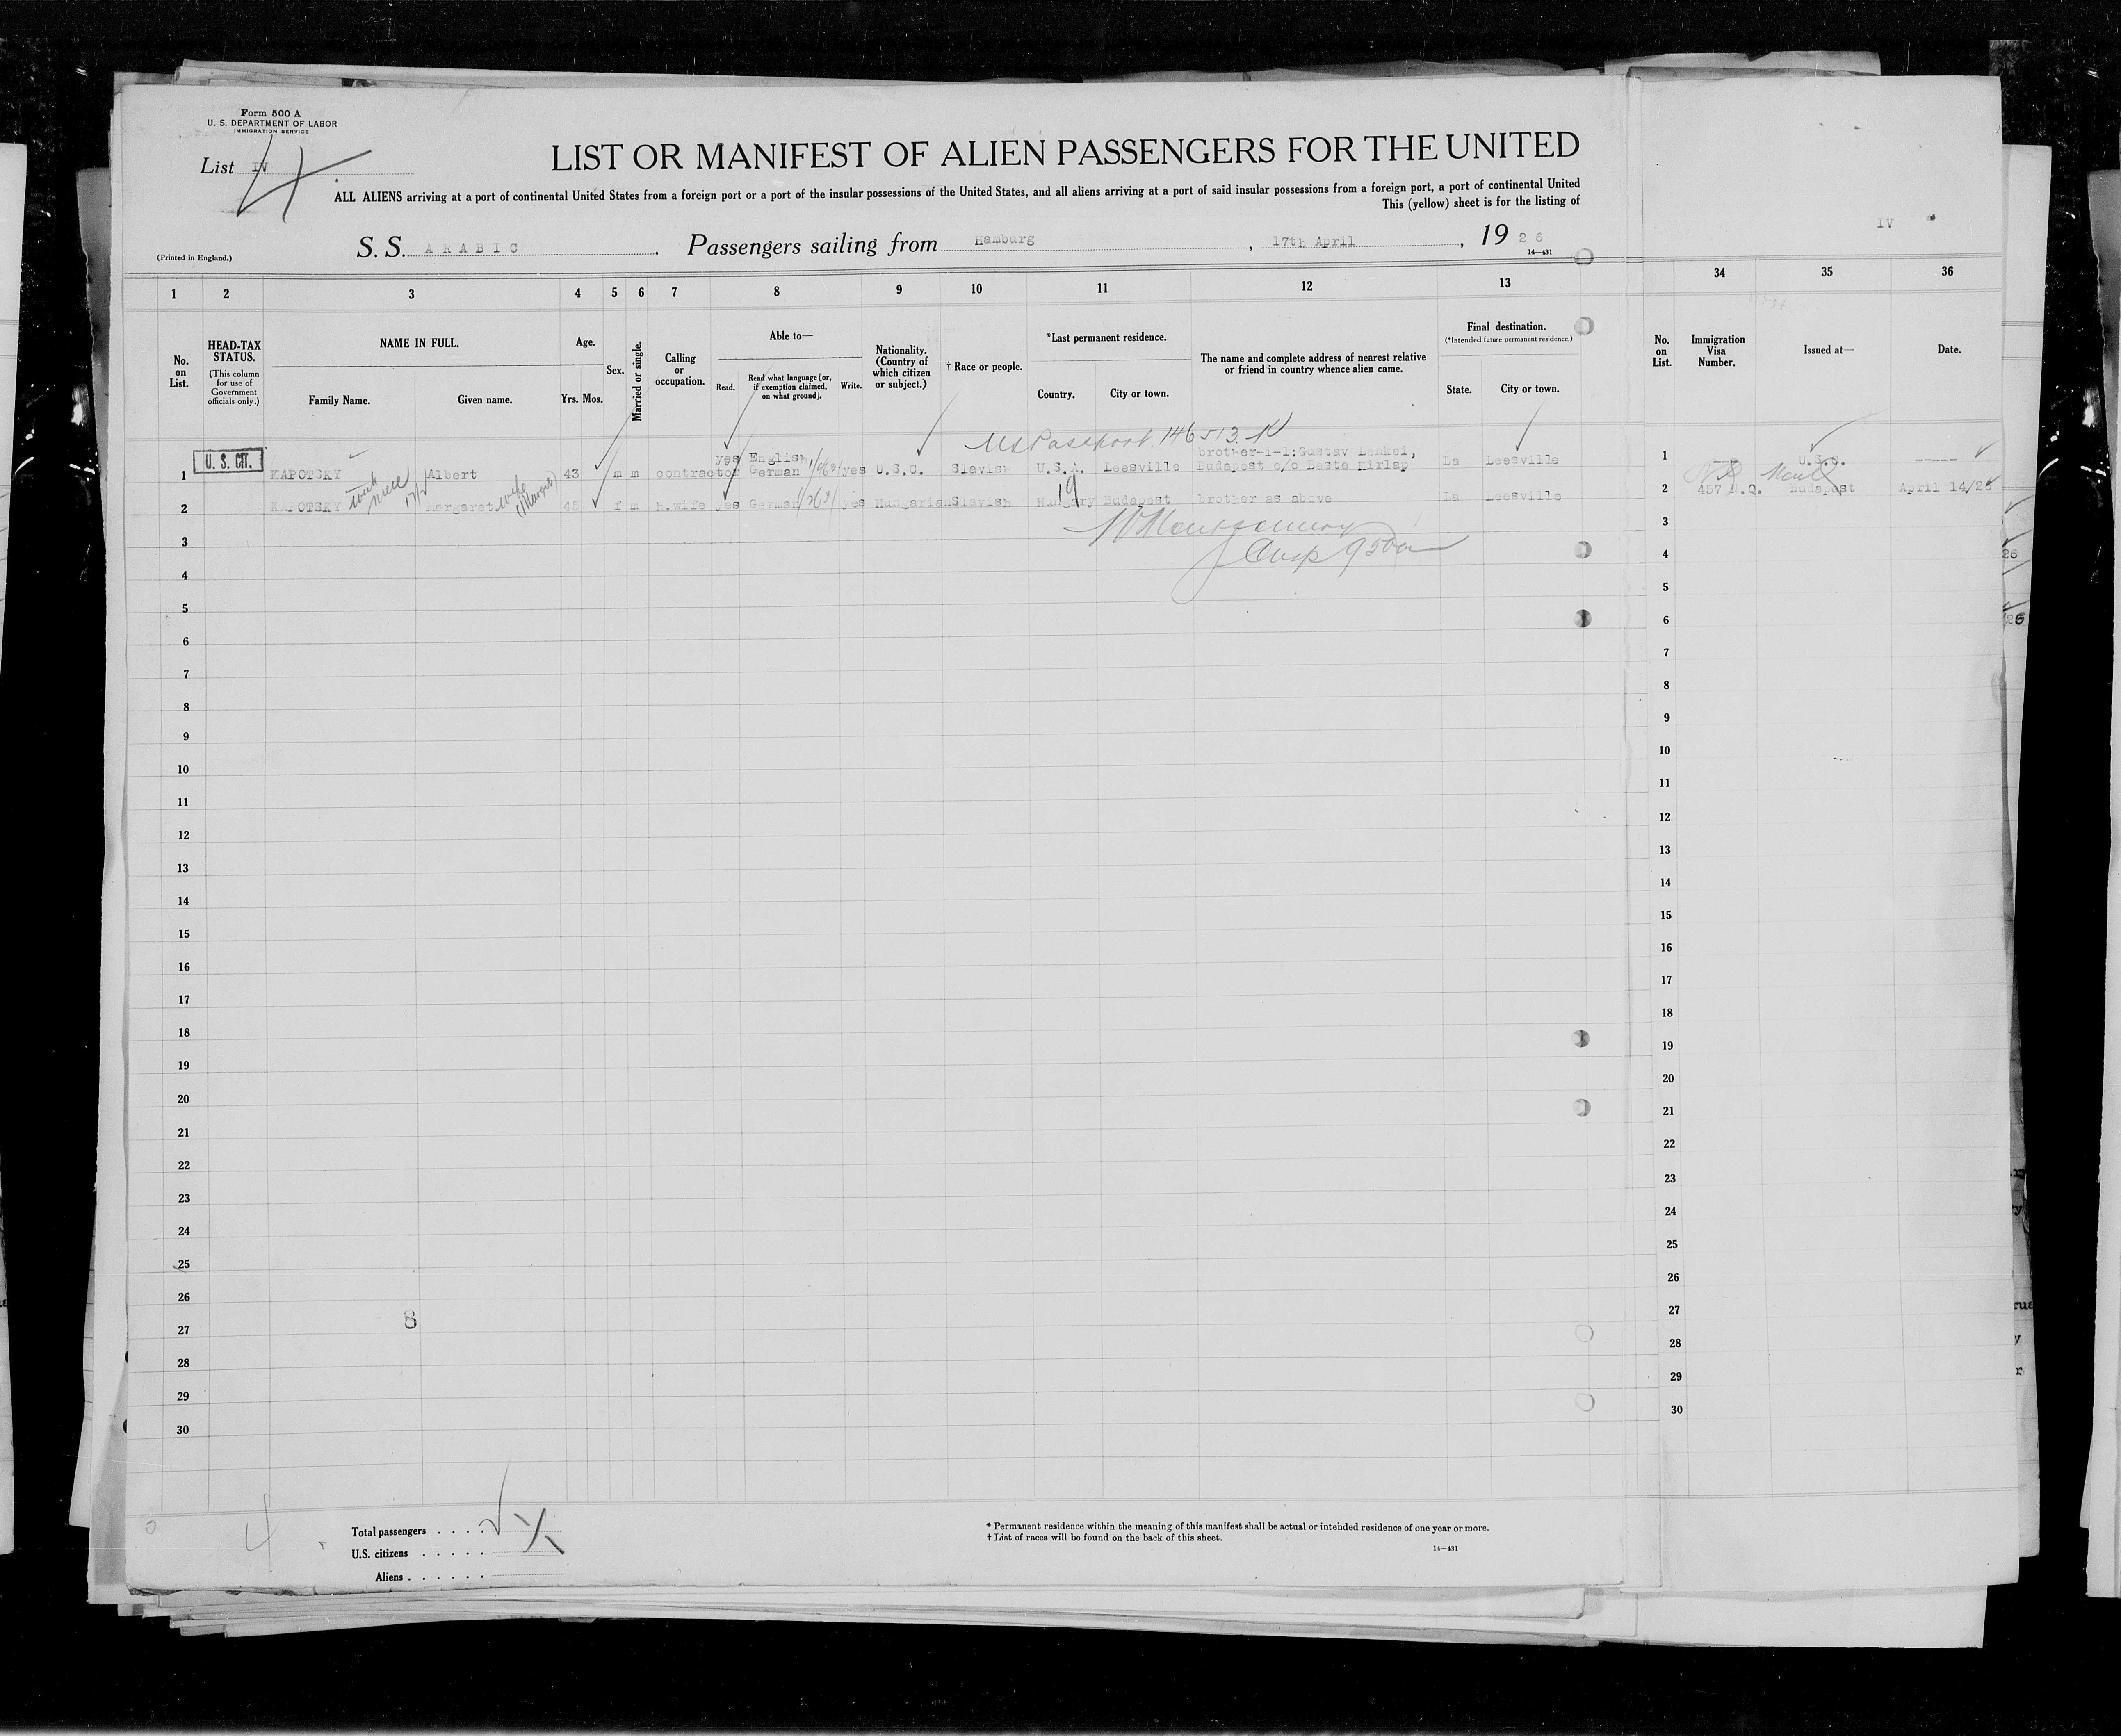 Form 500 A
U. S. DEPARTMENT OF LABOR
IMMIGRATION SERVICE
List IV
4
LIST OR MANIFEST OF ALIEN PASSENGERS FOR THE UNITED
ALL ALIENS arriving at a port of continental United States from a foreign port or a port of the insular possessions of the United States, and all aliens arriving at a port of said insular possessions from a foreign port, a port of continental United
This (yellow) sheet is for the listing of
IV
(Printed in England.)
S. S. ARABIC . Passengers sailing from Hamburg , 17th April , 19 26
14—431
1 2 3 4 5 6 7 8 9 10 11 12 13 34 35 36
No. on List.
HEAD-TAX STATUS.
(This column for use of Government officials only.)
NAME IN FULL.
Family Name. Given name.
Age.
Yrs. Mos.
Sex.
Married or single.
Calling or occupation.
Able to—
Read. Read what language [or, if exemption claimed, on what ground]. Write.
Nationality. (Country of which citizen or subject.)
† Race or people.
*Last permanent residence.
Country. City or town.
The name and complete address of nearest relative or friend in country whence alien came.
Final destination.
(*Intended future permanent residence.)
State. City or town.
No. on List.
Immigration Visa Number.
Issued at—
Date.
US Passport 146513
U. S. CIT.
1 KAPOTSKY Albert 43 m m contractor yes English German yes U.S.C. Slavish U.S.A. Leesville brother-i-l: Gustav Lenkei, Budapest c/o Beste Hirlap La Leesville 1 --- U.S.C. -----
2 KAPOTSKY Margaret wife (Margit) 45 f m h.wife yes German yes Hungarian Slavish Hungary Budapest brother as above La Leesville 2 457 N.Q. Budapest April 14/26
3 3
4 4
5 5
6 6
7 7
8 8
9 9
10 10
11 11
12 12
13 13
14 14
15 15
16 16
17 17
18 18
19 19
20 20
21 21
22 22
23 23
24 24
25 25
26 26
27 27
8
28 28
29 29
30 30
4
Total passengers . . . .
U.S. citizens . . . . .
Aliens . . . . . .
* Permanent residence within the meaning of this manifest shall be actual or intended residence of one year or more.
† List of races will be found on the back of this sheet.
14—431